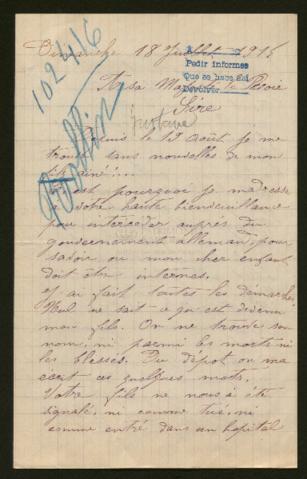 Dimanche 18 Juillet 1915
102416
Pedir informes
Que se hace así
Devolver
A sa Majesté le
Sire
Gustave
Depuis le 1er août je me
trouve sans nouvelles de mon
fils aîné!...
C'est pourquoi je m'adresse
à votre haute bienveillance
pour intercéder auprès du
gouvernement allemand pour
savoir ou mon cher enfant
doit être internés.
J'ai fait toutes les démarches
Nul ne sait ce qui est devenu
mon fils. On ne trouve son
nom, ni parmi les morts ni
les blessés. Du dépôt on m'a
écrit ces quelques mots.
Votre fils ne nous à été
signalé, ni comme tué, ni
comme entré dans un hôpital